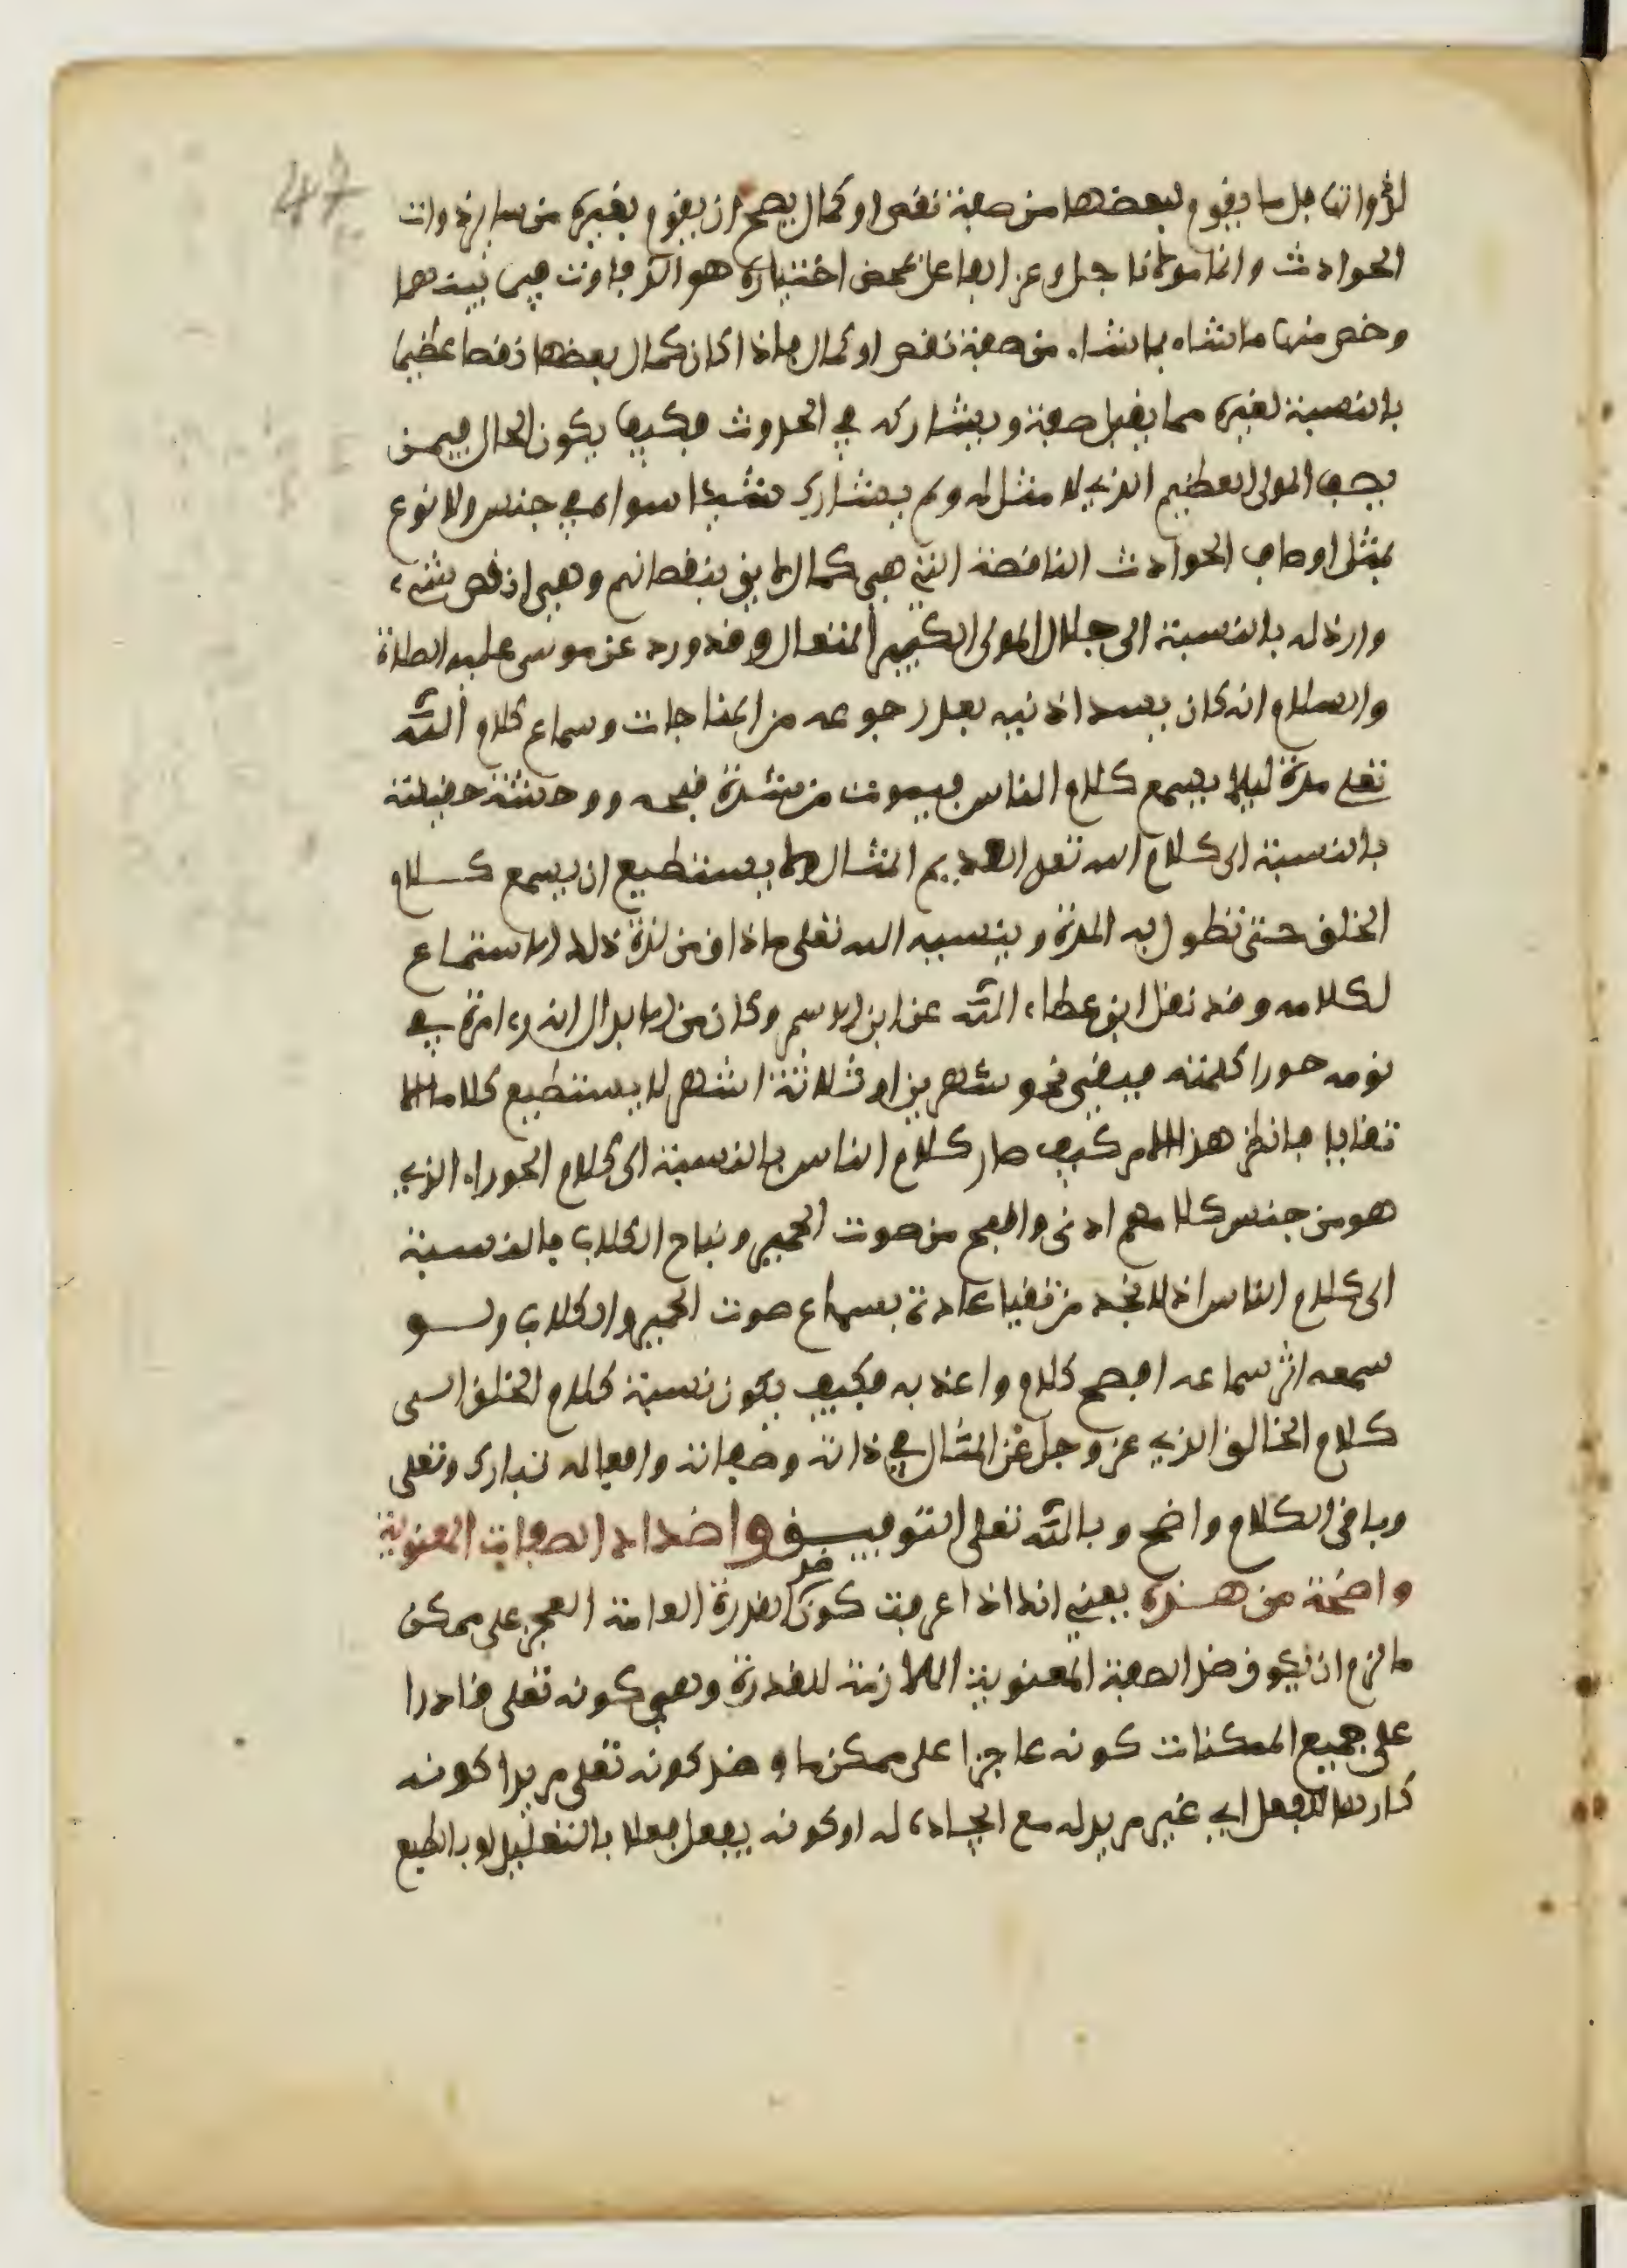 47
لذواتها بل ما يقوم ببعضها من صفة نقص او كمال يصح ان يقوم بغيره من ساير ذوات
الحوادث وانما مولانا جل وعز الفاعل بمحض اختياره هو الذي فاوت فيما بينهما
وخص منها ما شاء بما شاء من صفة نقص او كمال فاذا كان كمال بعضها نقصا عظيما
بالنسبة لغيره مما يقبل صفة ويشاركه في الحدوث فكيف يكون الحال فيمن
يصف المولى العظيم الذي لا مثل له ولم يشارك شيئا سواه في جنس ولا نوع
بمثل اوصاف الحوادث الناقصة التي هي كمال لايق بنقصانهم وهي انقص شيء
وارذله بالنسبة الى جلال المولى الكبير المتعال وقد ورد عن موسى عليه الصلاة
والسلام انه كان يسد اذنيه بعد رجوعه من المناجات وسماع كلام الله
تعلى مدة ليلا يسمع كلام الناس فيموت من شدة قبحه ووحشة حقيقته
بالنسبة الى كلام الله تعلى العديم المثال ولا يستطيع ان يسمع كلام
الخلق حتى تطول به المدة وينسيه الله تعلى ما ذاق من لذة ذلك الاستماع
لكلامه وقد نقل ابن عطاء الله عن ابن الاسمر وكان من الابدال انه رءا مرة في
نومه حورا كلمته فبقي نحو شهرين او ثلاثة اشهر لا يستطيع كلاما الا
تقايا فانظر هذا الامر كيف صار كلام الناس بالنسبة الى كلام الحوراء الذي
هو من جنس كلامهم ادنى واقبح من صوت الحمير ونباح الكلاب بالنسبة
الى كلام الناس اذ لا نجد من تقيا عادة بسماع صوت الحمير والكلاب ولو
سمعه اثر سماعه افصح كلام واعذبه فكيف يكون نسبة كلام الخلق الى
كلام الخالق الذي عز وجل عن المثال في ذاته وصفاته وافعاله تبارك وتعلى
وباقي الكلام واضح وبالله تعلى التوفيق واضداد الصفات المعنوية
واضحة من هذه يعني انه اذا عرفت كون ضد القدرة العامة العجز على ممكن
ما لزم ان يكون ضد الصفة المعنوية اللازمة للقدرة وهي كونه تعلى قادرا
على جميع الممكنات كونه عاجزا على ممكن ما وضد كونه تعلى مريدا كونه
كارها للفعل اي غير مريد له مع ايجاده له او كونه يفعل فعلا بالتعليل او بالطبع